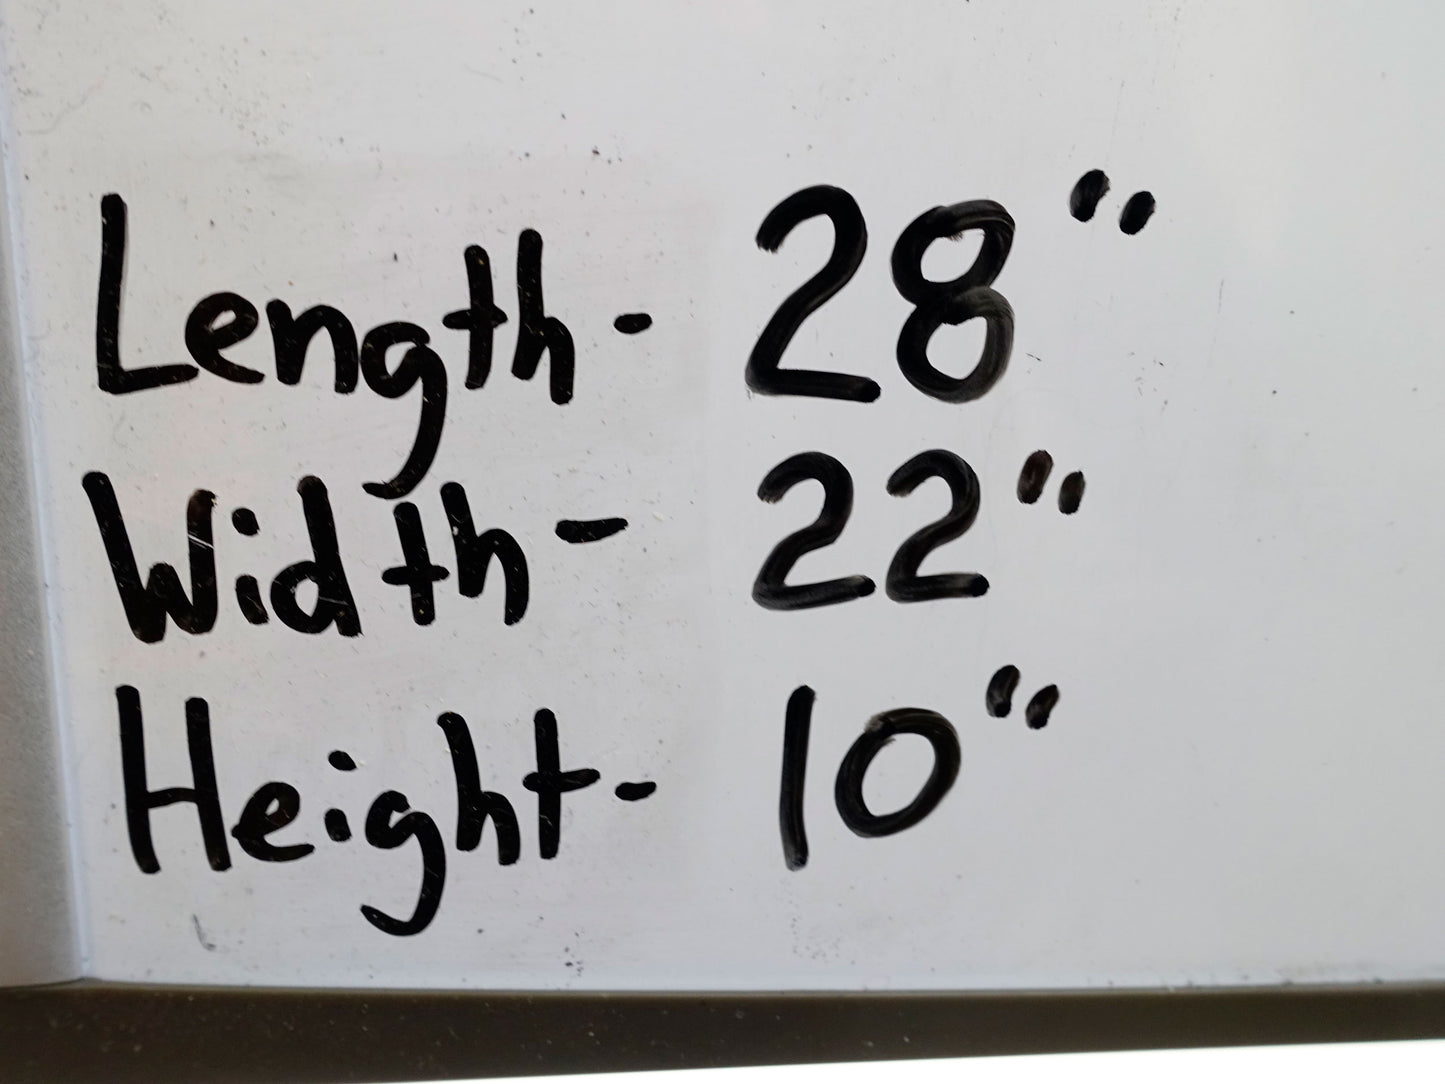 Length- 28"
Width- 22"
Height- 10"